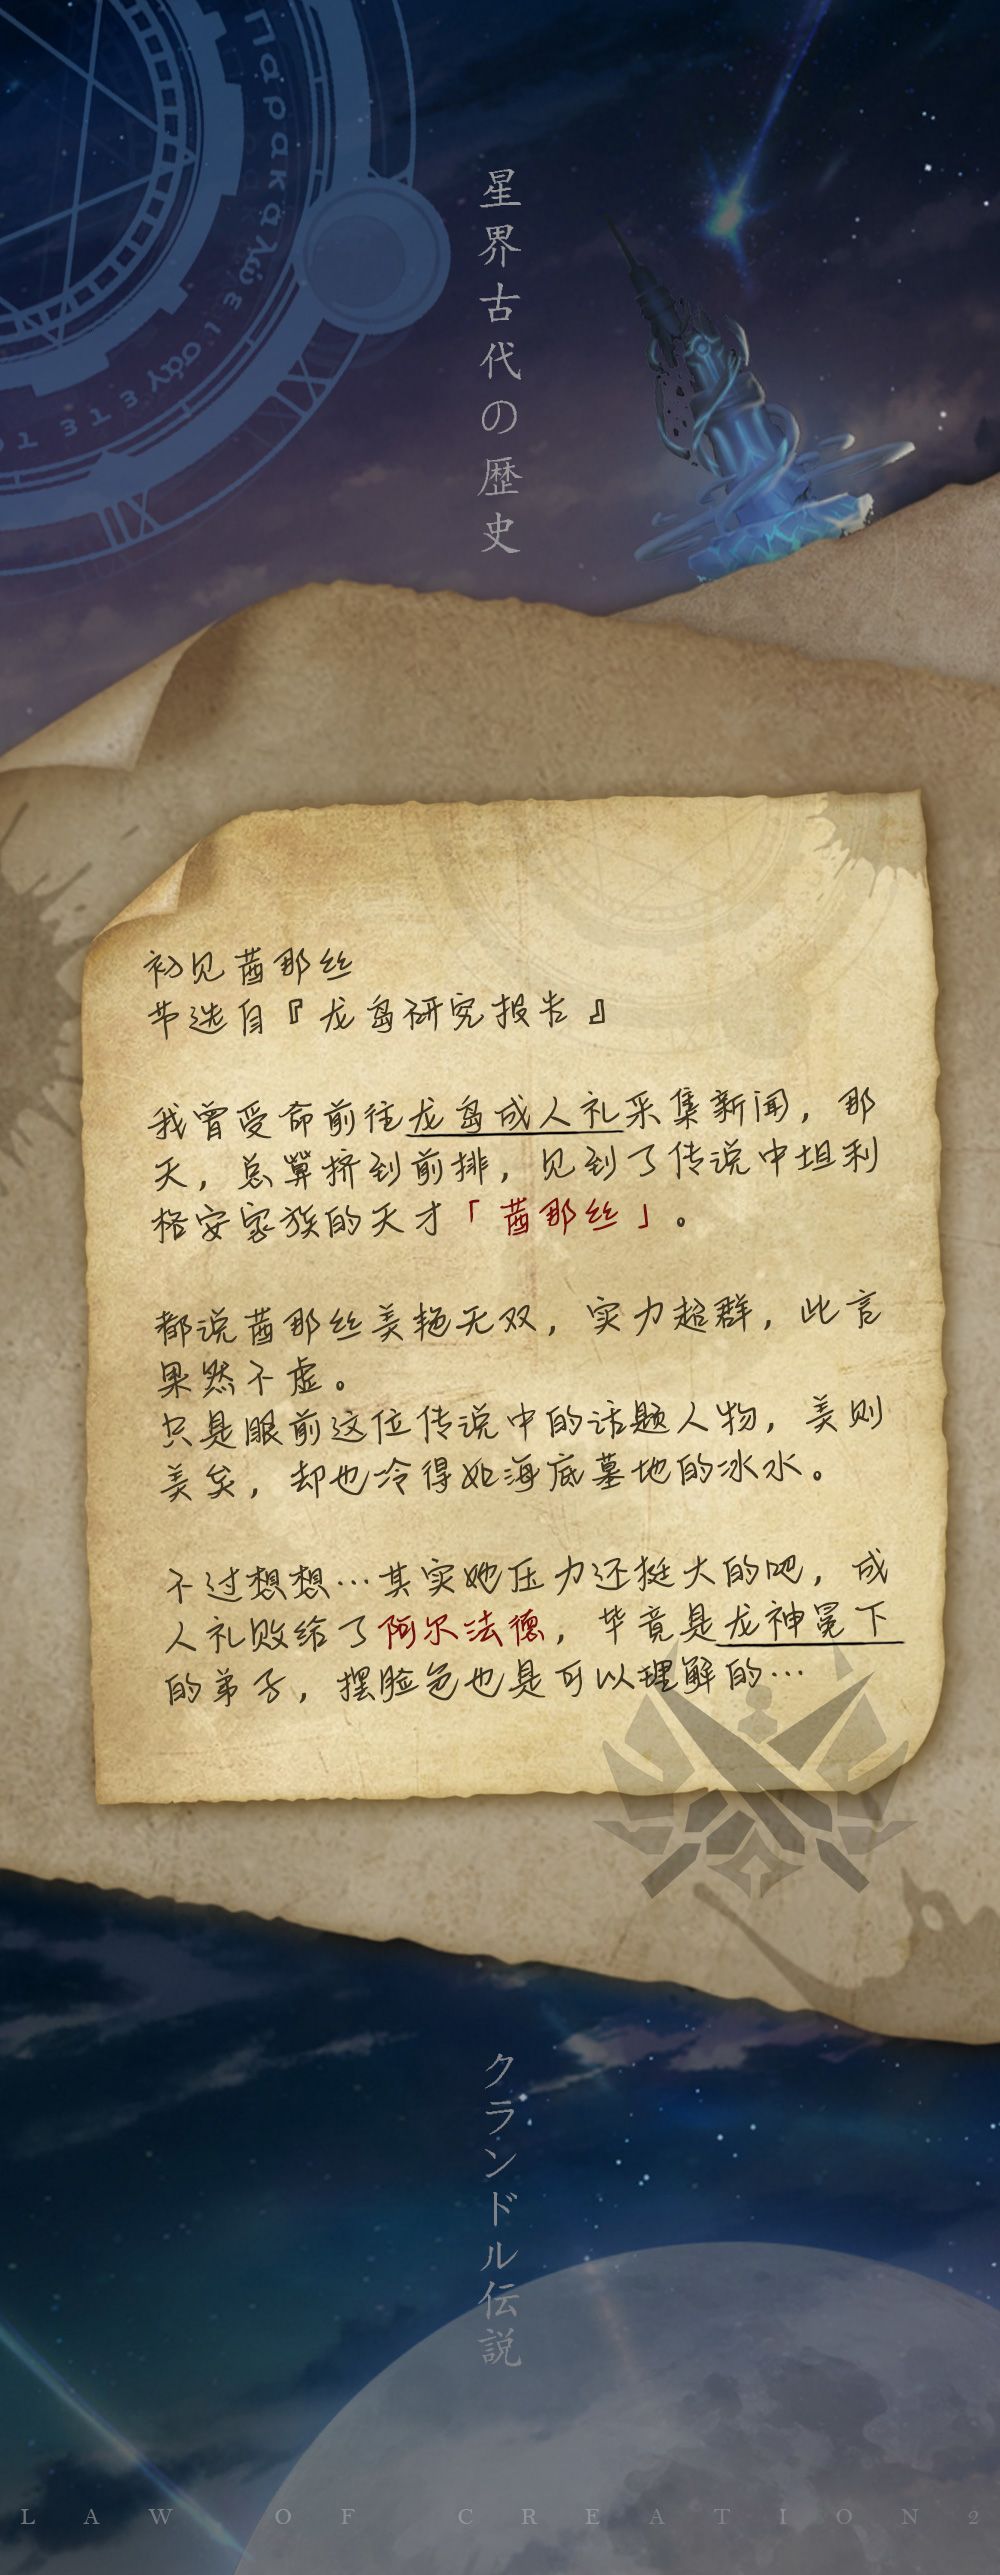 星界古代の歴史
初见茜那丝
节选自『龙岛研究报告』
我曾受命前往龙岛成人礼采集新闻，那
天，总算挤到前排，见到了传说中坦利
格安家族的天才「茜那丝」。
都说茜那丝美艳无双，实力超群，此言
果然不虚。
只是眼前这位传说中的话题人物，美则
美矣，却也冷得如海底墓地的冰水。
不过想想…其实她压力还挺大的吧，成
人礼败给了阿尔法德，毕竟是龙神冕下
的弟子，摆脸色也是可以理解的…
クランドル伝説
LAW OF CREATION2